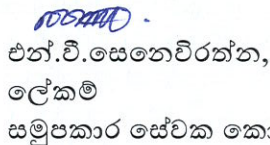 එන්.වී.සෙනෙවිරත්න,
ලේකම්
සමුපකාර සේවක